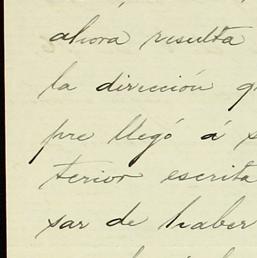 ahora resulta
la dirección q
pre llegó á s
terior escrita
sar de haber